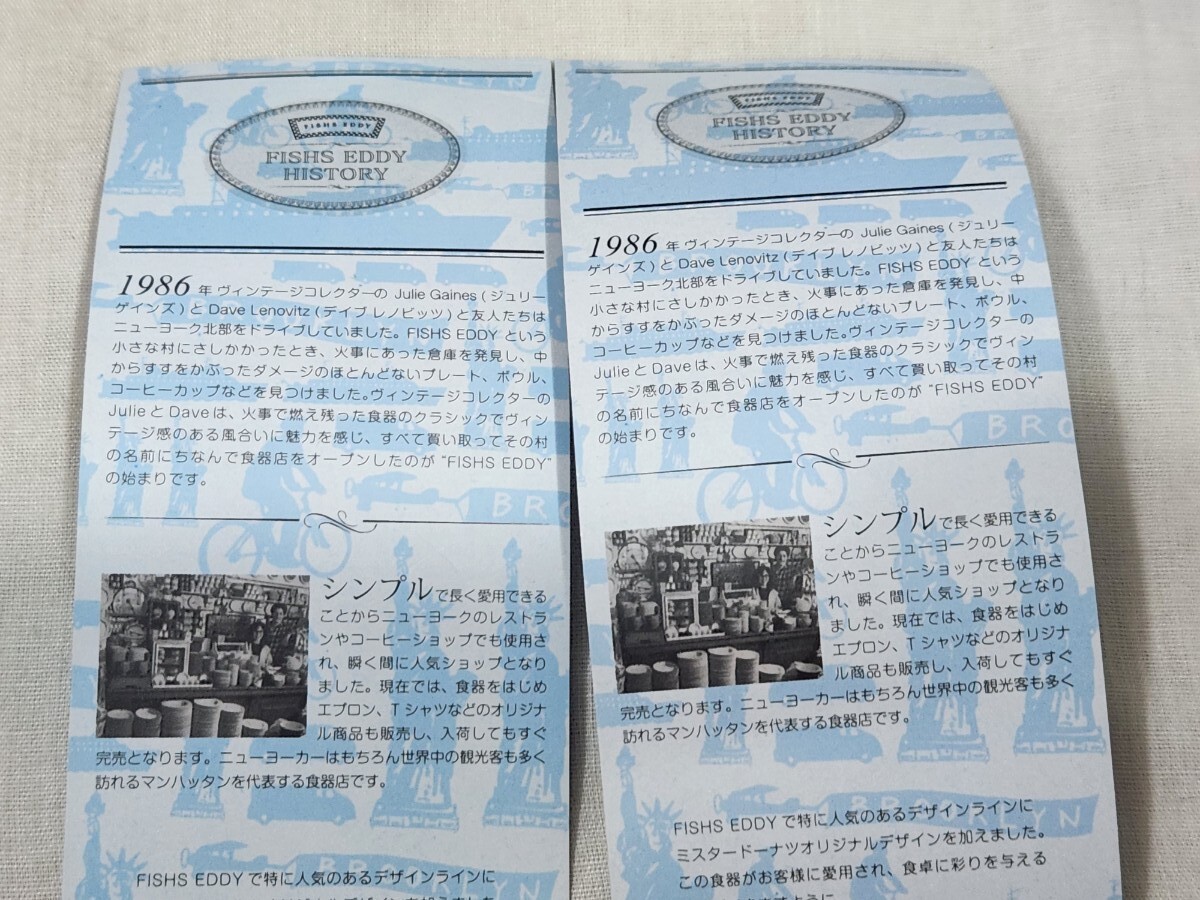 FISHS EDDY
FISHS EDDY
HISTORY
1986 年 ヴィンテージコレクターの Julie Gaines (ジュリー
ゲインズ) と Dave Lenovitz (デイブ レノビッツ) と友人たちは
ニューヨーク北部をドライブしていました。FISHS EDDY という
小さな村にさしかかったとき、火事にあった倉庫を発見し、中
からすすをかぶったダメージのほとんどないプレート、ボウル、
コーヒーカップなどを見つけました。ヴィンテージコレクターの
Julie と Dave は、火事で燃え残った食器のクラシックでヴィン
テージ感のある風合いに魅力を感じ、すべて買い取ってその村
の名前にちなんで食器店をオープンしたのが “FISHS EDDY”
の始まりです。
BRO
シンプルで長く愛用できる
ことからニューヨークのレストラ
ンやコーヒーショップでも使用さ
れ、瞬く間に人気ショップとなり
ました。現在では、食器をはじめ
エプロン、T シャツなどのオリジナ
ル商品も販売し、入荷してもすぐ
完売となります。ニューヨーカーはもちろん世界中の観光客も多く
訪れるマンハッタンを代表する食器店です。
BROOKLYN
FISHS EDDY で特に人気のあるデザインラインに
FISHS EDDY
FISHS EDDY
HISTORY
1986 年 ヴィンテージコレクターの Julie Gaines (ジュリー
ゲインズ) と Dave Lenovitz (デイブ レノビッツ) と友人たちは
ニューヨーク北部をドライブしていました。FISHS EDDY という
小さな村にさしかかったとき、火事にあった倉庫を発見し、中
からすすをかぶったダメージのほとんどないプレート、ボウル、
コーヒーカップなどを見つけました。ヴィンテージコレクターの
Julie と Dave は、火事で燃え残った食器のクラシックでヴィン
テージ感のある風合いに魅力を感じ、すべて買い取ってその村
の名前にちなんで食器店をオープンしたのが “FISHS EDDY”
の始まりです。
BRO
シンプルで長く愛用できる
ことからニューヨークのレストラ
ンやコーヒーショップでも使用さ
れ、瞬く間に人気ショップとなり
ました。現在では、食器をはじめ
エプロン、T シャツなどのオリジナ
ル商品も販売し、入荷してもすぐ
完売となります。ニューヨーカーはもちろん世界中の観光客も多く
訪れるマンハッタンを代表する食器店です。
BROOKLYN
FISHS EDDY で特に人気のあるデザインラインに
ミスタードーナツオリジナルデザインを加えました。
この食器がお客様に愛用され、食卓に彩りを与える